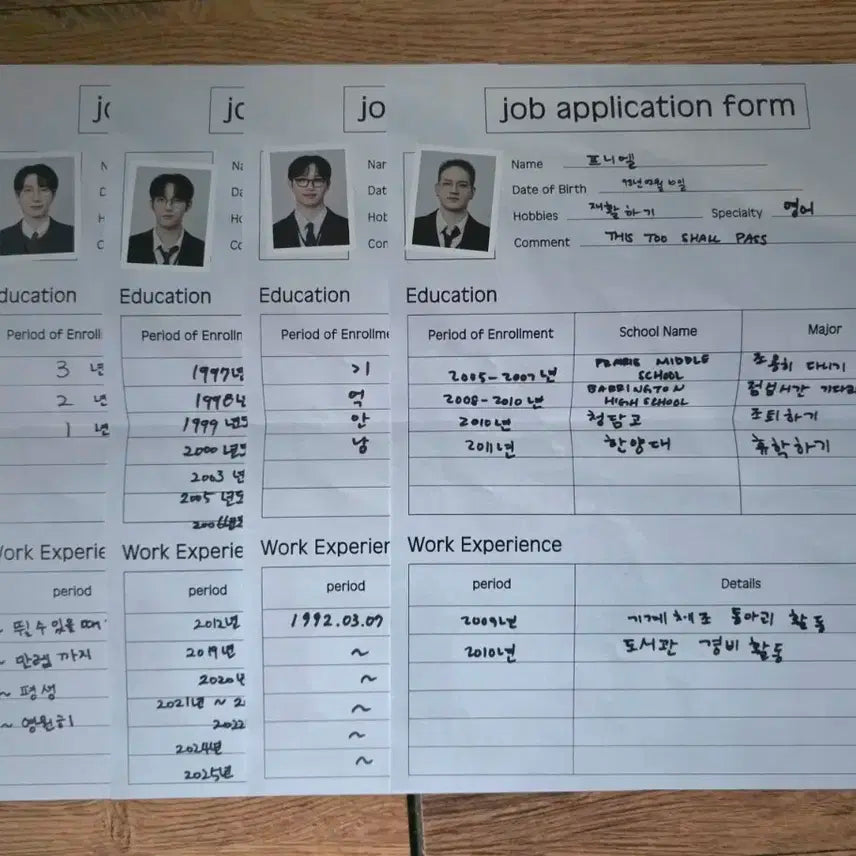 jo
jo
jo
job application form
Name 프니엘
Date of Birth 93년 02월 10일
Hobbies 재활하기 Specialty 영어
Comment THIS TOO SHALL PASS
Education
Period of Enrollment School Name Major
2005-2007년 MIDDLE SCHOOL 조용히 다니기
2008-2010년 BARRINGTON HIGH SCHOOL 점심시간
2010년 청담고 조퇴하기
2011년 한양대 휴학하기
Work Experience
period Details
2009년 기계체조 동아리 활동
2010년 도서관 경비 활동
Nar
Dat
Hob
Con
Education
Period of Enrollme
기
억
안
남
Work Experien
period
1992.03.07
~
~
~
~
~
Na
Da
Ho
Co
Education
Period of Enrolln
1997년
1998년
1999년도
2000년도
2003년
2005년도
2006년도
Work Experie
period
2012년
2019년
2020년
2021년 ~ 2
2022
2024년
2025년
N
D
H
C
ducation
Period of Enroll
3 년
2 년
1 년
Work Experie
period
~ 뛸 수 있을 때
~ 만렙 까지
~ 평생
~ 영원히